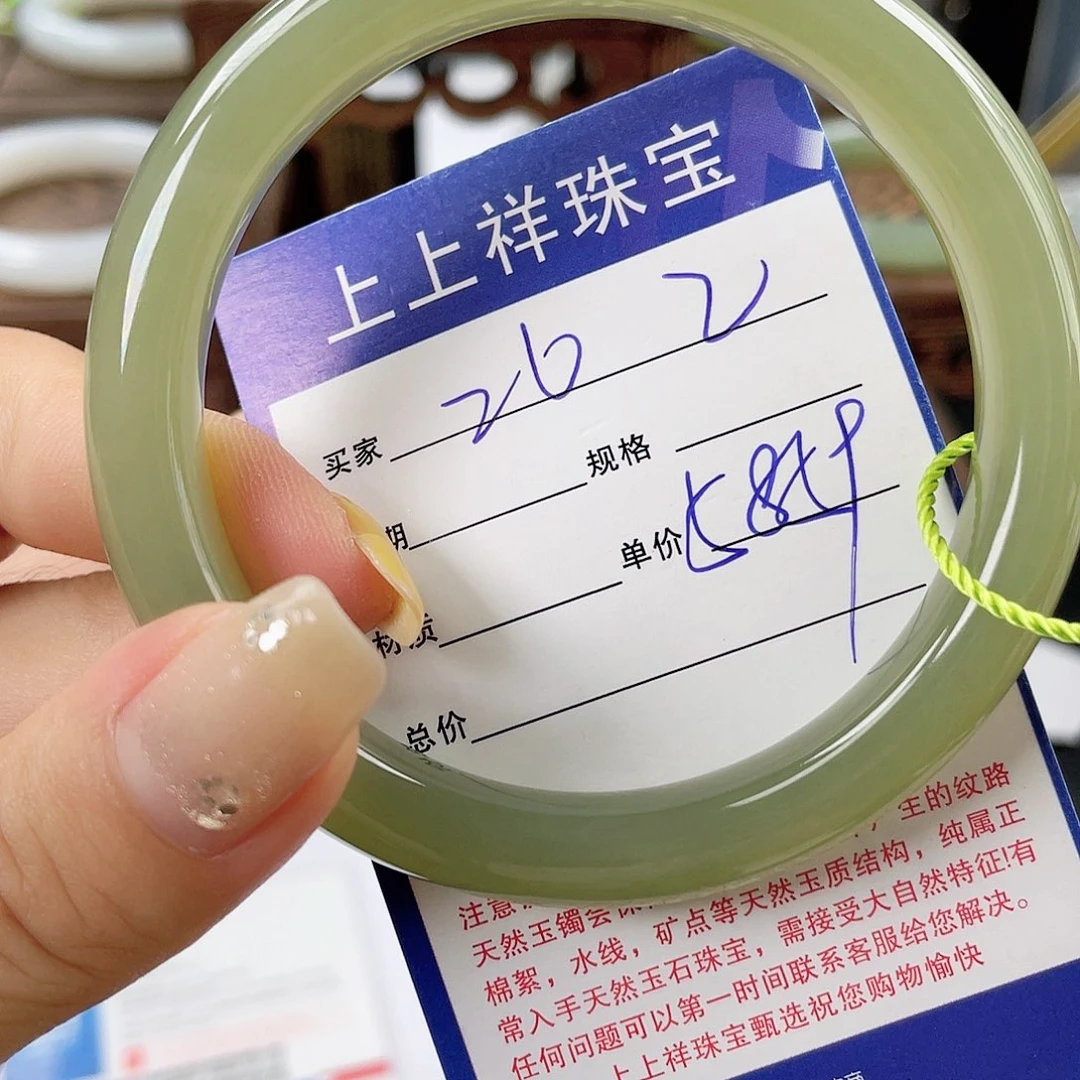 上上祥珠宝
买家 26 2
期 规格
材质 单价 58圈
总价
注意
产生的纹路
天然玉镯会 ，纯属正
棉絮，水线，矿点等天然玉质结构，
常入手天然玉石珠宝，需接受大自然特征!有
任何问题可以第一时间联系客服给您解决。
上上祥珠宝甄选祝您购物愉快